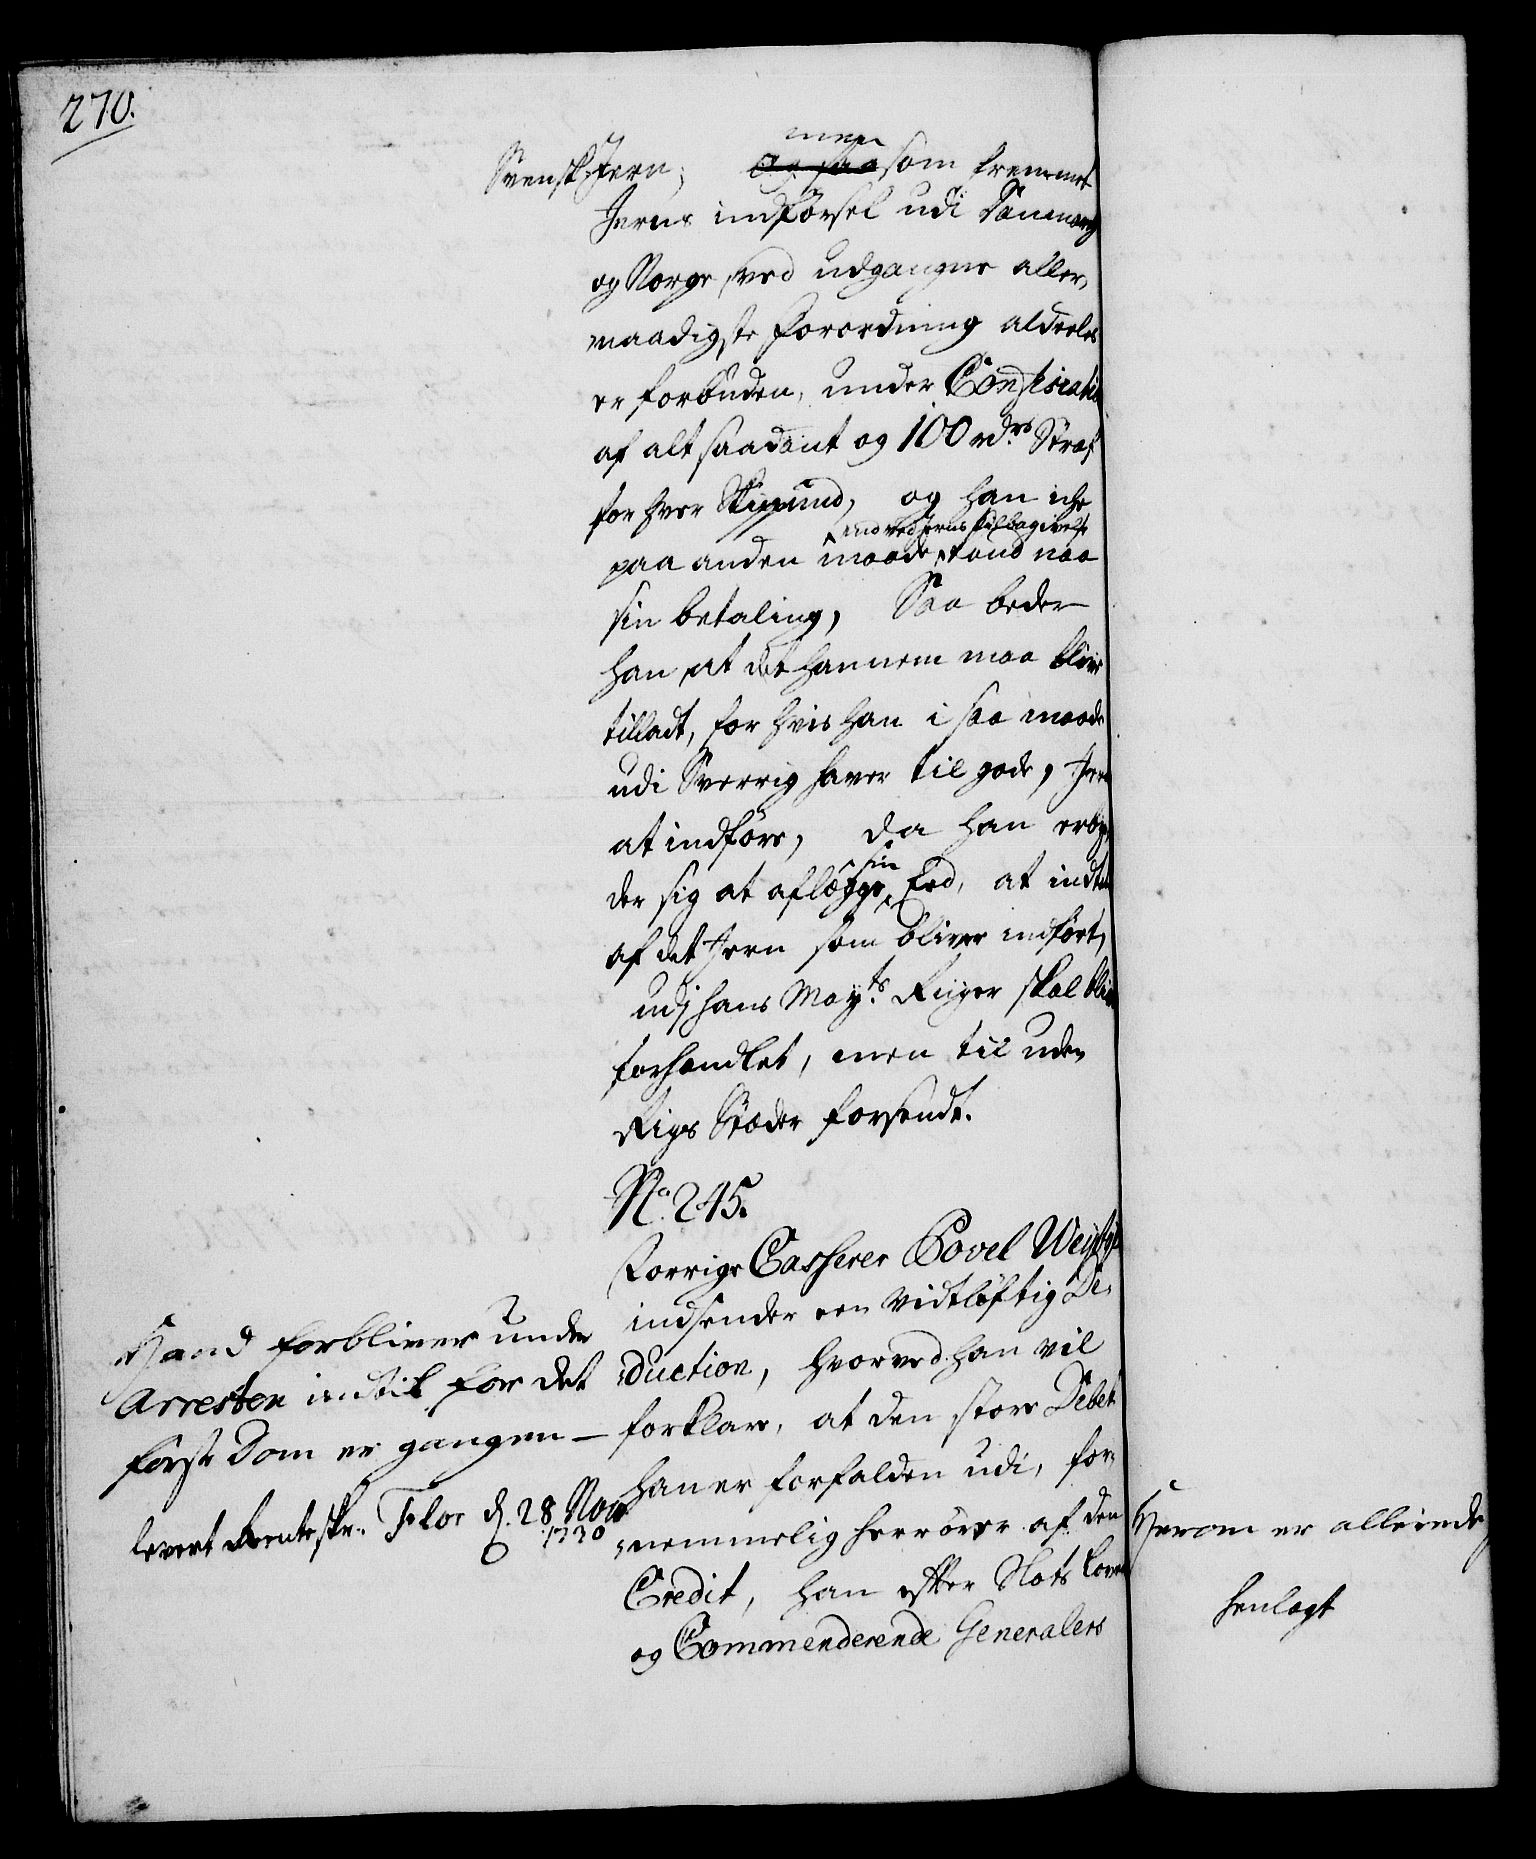 270.
men
Svensk Jern; Og saasom fremmet
Jerns indførsel udi Danmarg
og Norge, ved udgangne aller,
naadigste Forordning aldeeles
er forbuden, under Confiscation
af alt saadant og 100 rdrs Straf
for hver Skippund, og han iche
end ved Jerns tilbagivelse
paa anden maade stond naa
sin betaling, Saa beder
han, at det hannem maa blive
tilladt, for hvis han i saa maade
udi Sverrig haver til gode, Jern
at indføre, da han erbyr,
sin
der sig at aflægge Eed, at indtet
af det Jern som bliver indført,
udj hans Mayts Riiger skal blive
forhandlet, men til uden
Rigs Stæder forsendt.
No. 245.
Forrige Casserer Povel
indsender een vidtløftig De,
duction, hvorved han vil
forklare, at den store Debet
han er forfalden udi, for,
nemmelig herrører af den
Credit, han efter Slots Lovens
og Commenderende Generalers
Hand forbliver under
Arresten indtil for det
første Dom er gangen —
levert Renteskr. Flor d. 28 Nov
1730
Herom er allerede
henlagt